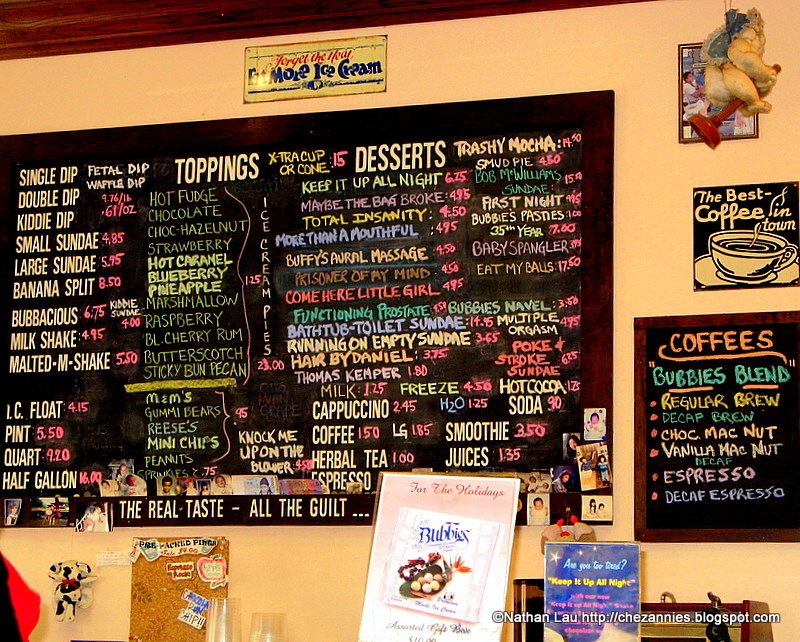 Forget the Heat
Eat More Ice Cream
SINGLE DIP
DOUBLE DIP
KIDDIE DIP
SMALL SUNDAE 4.85
LARGE SUNDAE 5.95
BANANA SPLIT 8.50
BUBBACIOUS 6.75
MILK SHAKE 4.95
MALTED-M-SHAKE 5.50
I.C. FLOAT 4.15
PINT 5.50
QUART 9.20
HALF GALLON 16.00
PETAL DIP
WAFFLE DIP
9.76/lb
.61/OZ
KIDDIE SUNDAE
4.00
TOPPINGS
HOT FUDGE
CHOCOLATE
CHOC-HAZELNUT
STRAWBERRY
HOT CARAMEL
BLUEBERRY
PINEAPPLE
MARSHMALLOW
RASPBERRY
BL. CHERRY RUM
BUTTERSCOTCH
STICKY BUN PECAN
1.25
M&M'S
GUMMI BEARS
REESE'S
MINI CHIPS
PEANUTS
SPRINKLES .75
.95
ICE CREAM PIES
23.00
KNOCK ME
UP ON THE
BLOWER
X-TRA CUP
OR CONE .15
DESSERTS
KEEP IT UP ALL NIGHT 6.75
MAYBE THE BAG BROKE: 4.95
TOTAL INSANITY: 4.50
MORE THAN A MOUTHFUL 4.95
BUFFY'S AURAL MASSAGE 4.50
PRISONER OF MY MIND 4.50
COME HERE LITTLE GIRL 4.95
FUNCTIONING PROSTATE 4.50
BATHTUB-TOILET SUNDAE: 14.95
RUNNING ON EMPTY SUNDAE 3.65
HAIR BY DANIEL: 3.75
THOMAS KEMPER 1.80
MILK: 1.25 FREEZE 4.50
CAPPUCCINO 2.45 H2O 1.25
COFFEE 1.50 LG 1.85
HERBAL TEA 1.00
ESPRESSO
TRASHY MOCHA: 14.50
SMUD PIE 4.50
BOB MCWILLIAMS
SUNDAE:
FIRST NIGHT
BUBBIES PASTIES
35TH YEAR 7.00
BABY SPANGLER
EAT MY BALLS: 17.50
BUBBIES NAVEL: 3.50
MULTIPLE
ORGASM
POKE &
STROKE
SUNDAE
HOT COCOA
SODA .90
SMOOTHIE 3.50
JUICES 1.35
THE REAL TASTE - ALL THE GUILT ...
The Best
Coffee in
town
COFFEES
"BUBBIES BLEND"
REGULAR BREW
DECAF BREW
CHOC MAC NUT
VANILLA MAC NUT
DECAF
ESPRESSO
DECAF ESPRESSO
PRE-PACKED PINTS
For The Holidays
Bubbies
Assorted Gift Box
Are you too tired?
"Keep It Up All Night"
with our new
"Keep It Up All Night" Shake
©Nathan Lau http://chezannies.blogspot.com